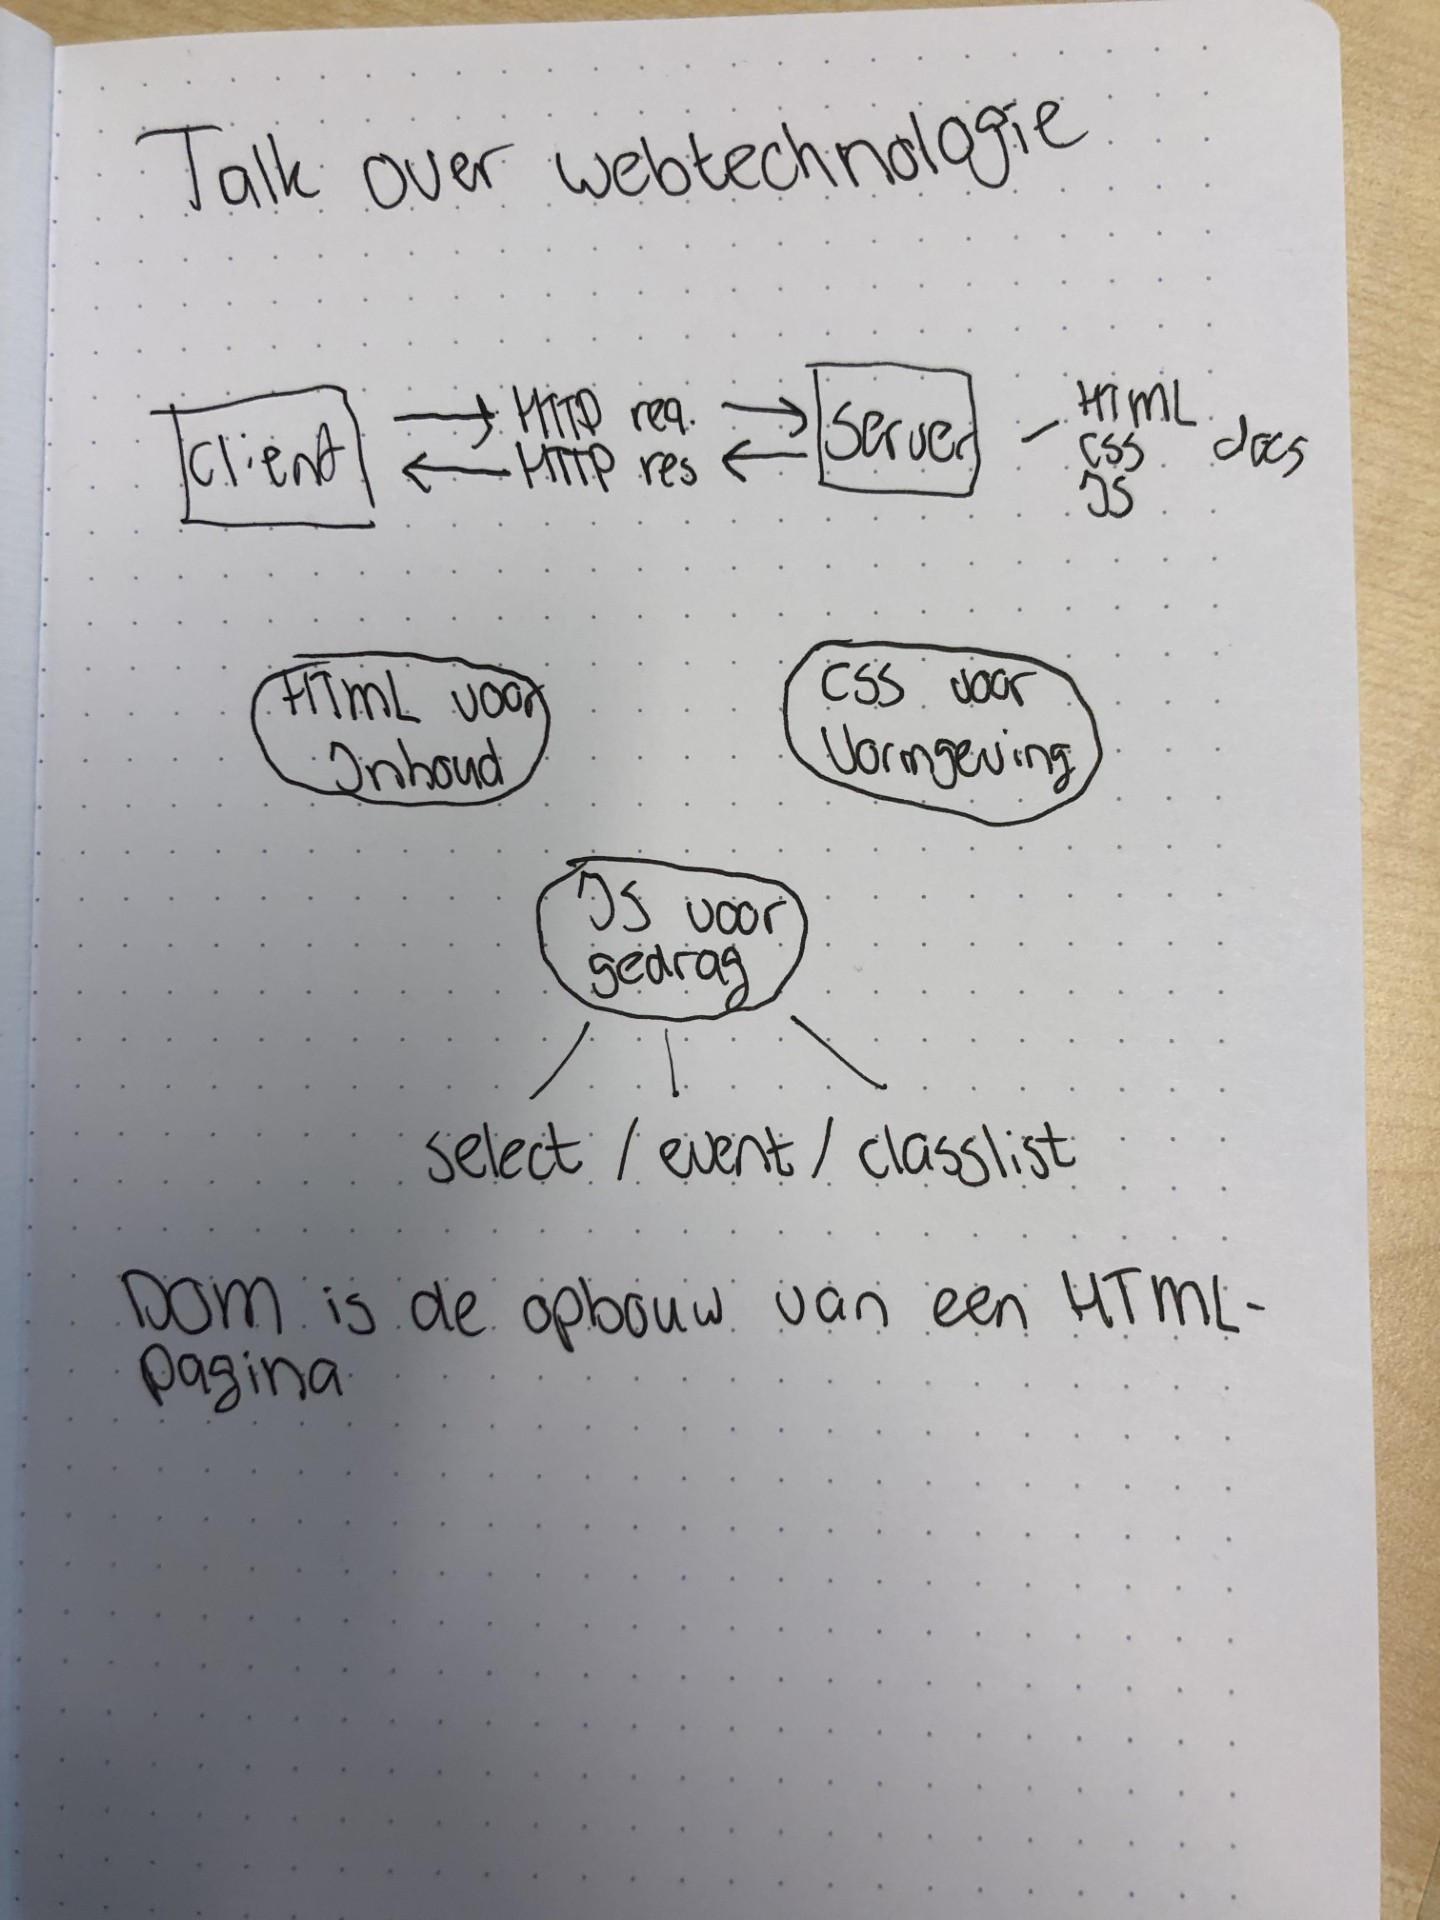 Talk over webtechnologie
Client
HTTP req.
HTTP res
Server
HTML
CSS
JS
docs
HTML voor
Inhoud
CSS voor
Vormgeving
JS voor
gedrag
select / event / classlist
DOM is de opbouw van een HTML-
pagina